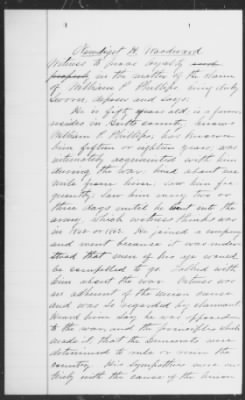 Newdigit H. Woodward
Witness to prove loyalty and
property in the matter of the claim
of William P. Phillips being duly
Sworn, deposes and says:
He is fifty years old, is a farmer
resides in Butts county, knows
William P. Phillips, has known
him fifteen or eighteen years, was
intimately acquainted with him
during the war, lived about one
mile from him. Saw him fre
quently, saw him every two or
three days until he went into the
army, which witness thinks was
in 1861 or 1862. He joined a company
and went because it was under
stood that men of his age would
be compelled to go. Talked with
him about the war. Witness was
an adherent of the Union cause
and was so regarded by claimant
Heard him say he was opposed
to the war, and the principles which
made it, that the Democrats were
determined to rule or ruin the
country. His sympathies were en
tirely with the cause of the Union